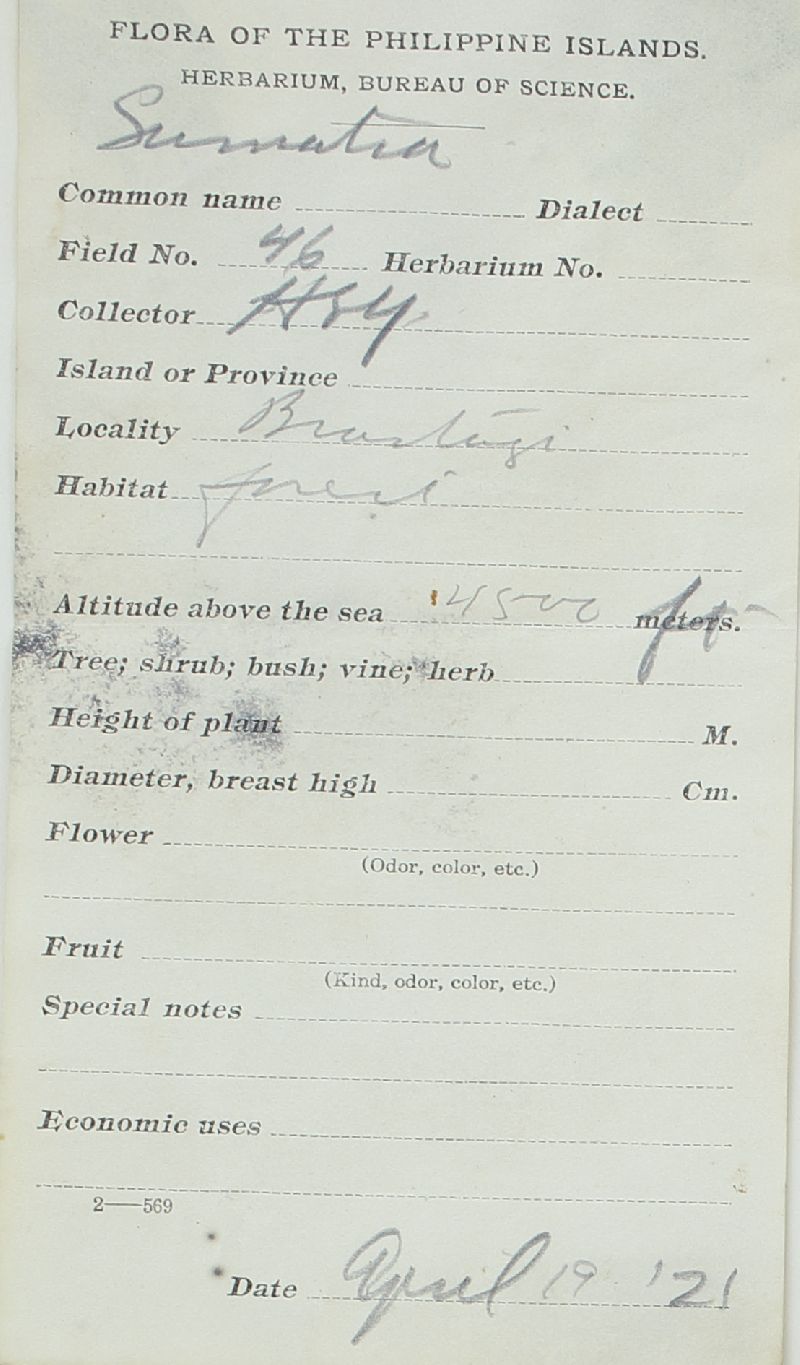 FLORA OF THE PHILIPPINE ISLANDS.
HERBARIUM, BUREAU OF SCIENCE.
Sumatra
Common name Dialect
Field No. 46 Herbarium No.
Collector HSY
Island or Province
Locality Brastagi
Habitat forest
Altitude above the sea 4500 meters. ft
Tree; shrub; bush; vine; herb
Height of plant M.
Diameter, breast high Cm.
Flower
(Odor, color, etc.)
Fruit
(Kind, odor, color, etc.)
Special notes
Economic uses
2—569
Date April 19 '21